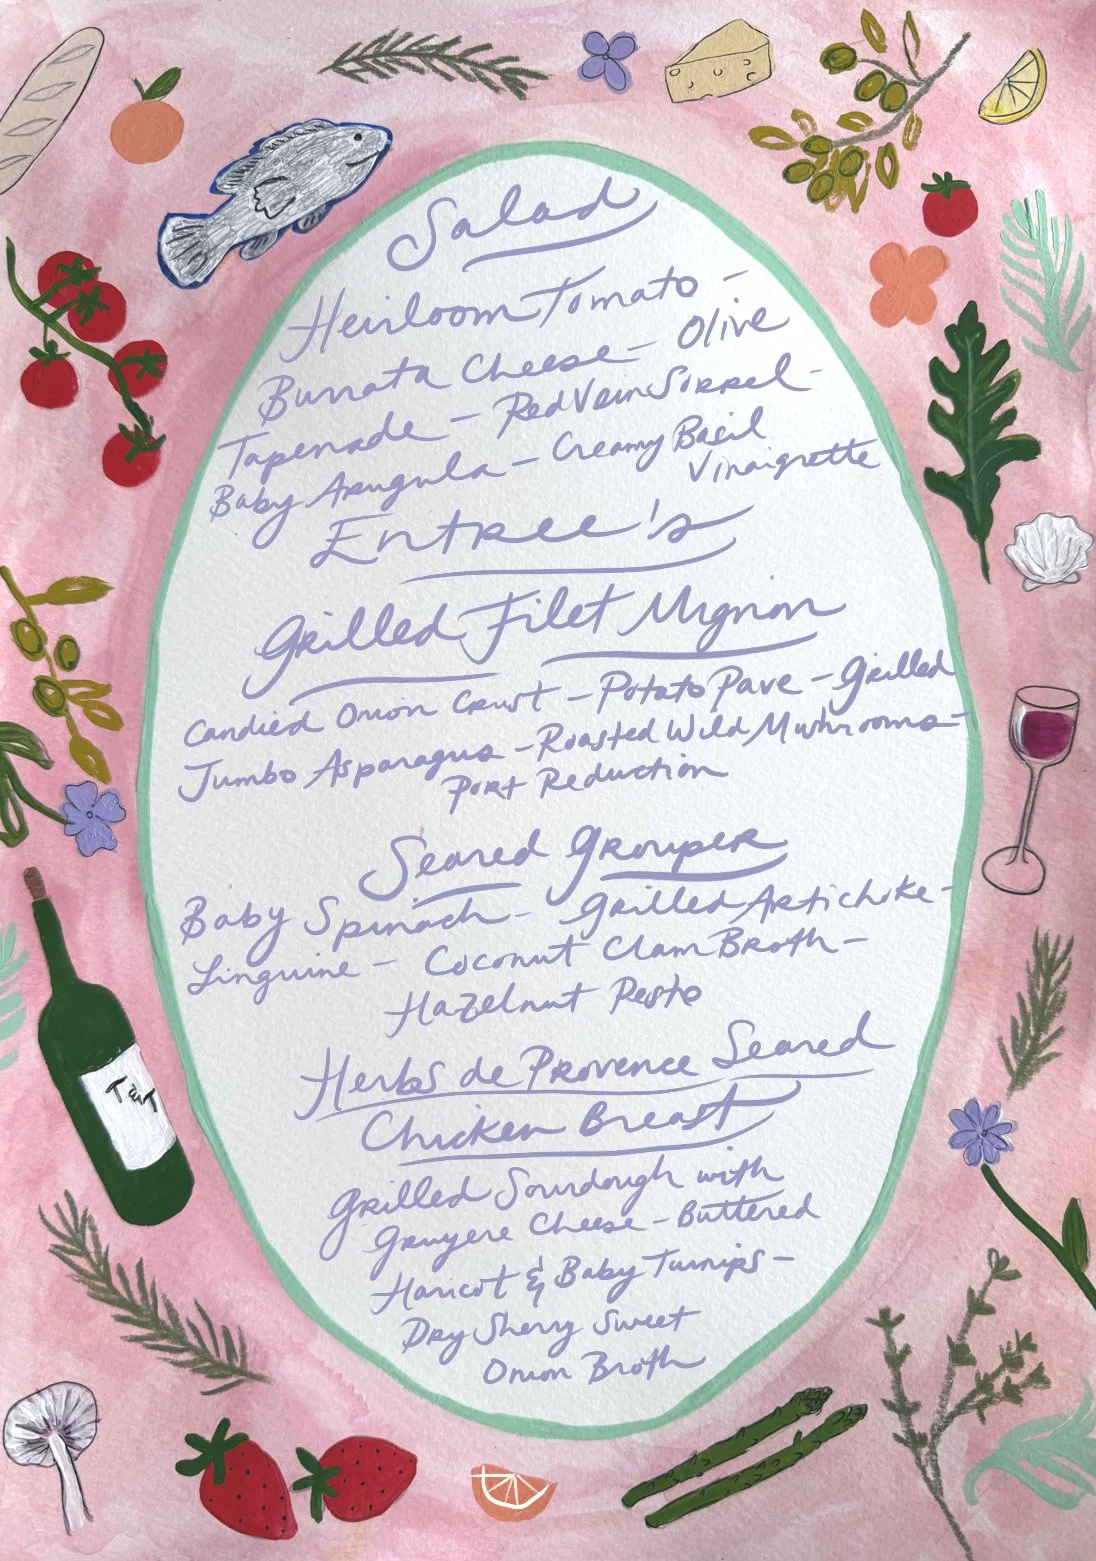 Salad
Heirloom Tomato -
Burrata Cheese - Olive
Tapenade - Red Vein Sorrel -
Baby Arugula - Creamy Basil
Vinaigrette
Entree's
Grilled Filet Mignon
Candied Onion Crust - Potato Pave - Grilled
Jumbo Asparagus - Roasted Wild Mushrooms -
Port Reduction
Seared Grouper
Baby Spinach - Grilled Artichoke -
Linguine - Coconut Clam Broth -
Hazelnut Pesto
Herbs de Provence Seared
Chicken Breast
Grilled Sourdough with
Gruyere Cheese - Buttered
Haricot & Baby Turnips -
Dry Sherry Sweet
Onion Broth
T&T